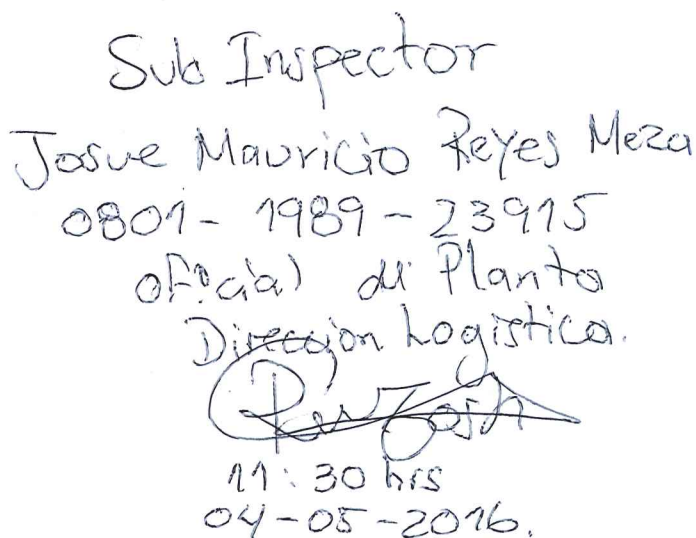 Sub Inspector
Josue Mauricio Reyes Meza
0801- 1989 - 23915
oficial de Planta
Dirección Logistica.
11:30 hrs
04-05-2016.